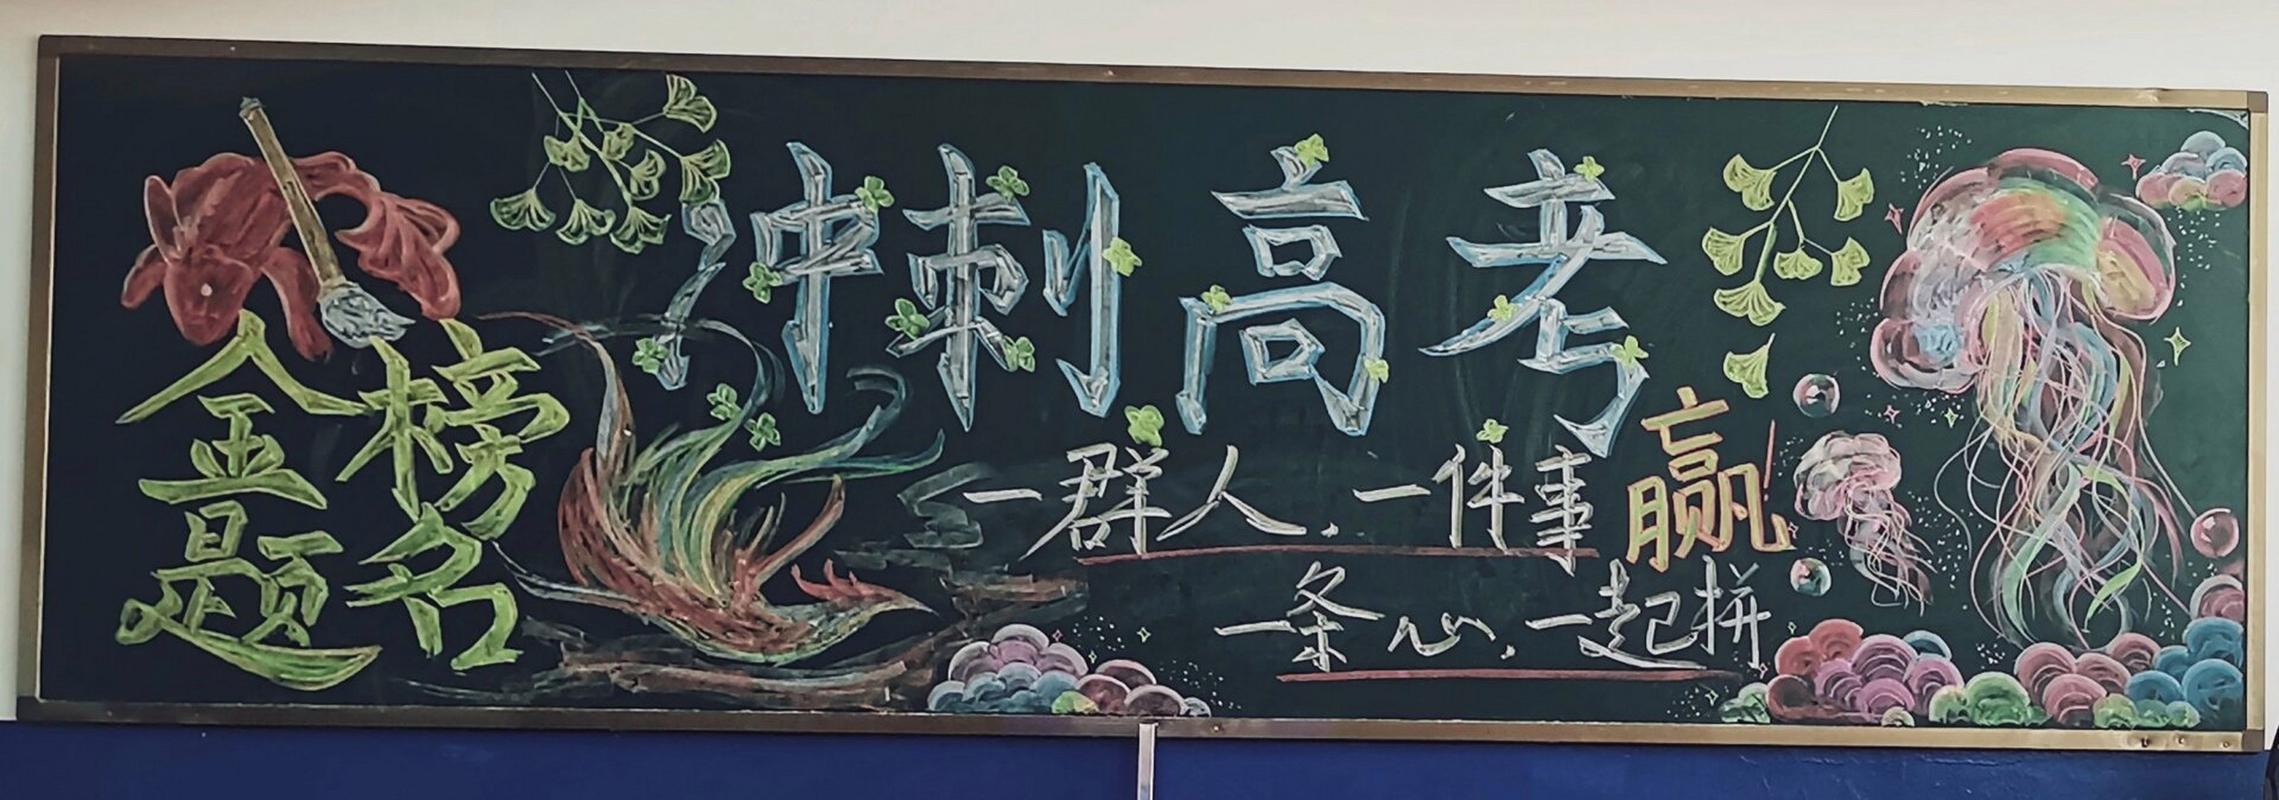 金榜
题名
冲刺高考
一群人.一件事赢!
一条心.一起拼